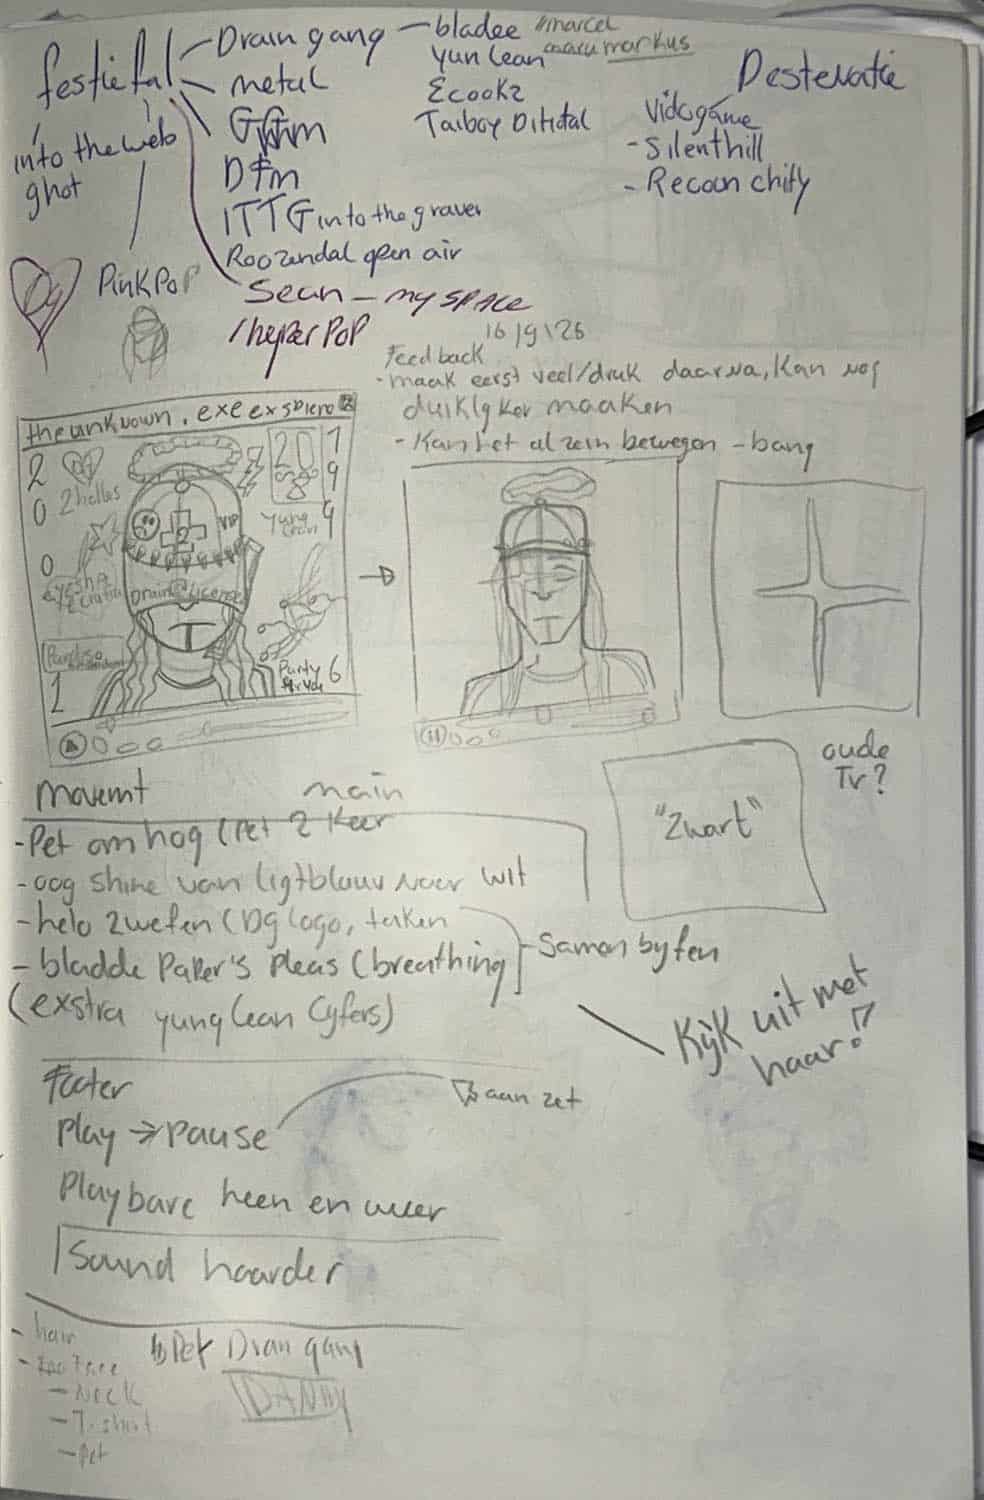 festiefal
Drain gang
bladee
marcel
Yun Lean
markus
Ecook2
Taiboy Ditidal
metal
GGm
Dfm
ITTG into the graver
Roozendal open air
Sean - my space
/hyperPoP
into the web
ghot
PinkPoP
Destenatie
Vidogame
- Silenthill
- Recoun chify
16/9/25
Feedback
- maak eerst veel/druk daarna, kan nog
duiklyker maaken
- Kan het al zein bewegen - bang
the unknown.exe
2
0
0
1
2hollis
VIP
Drain
20
1
9
9
6
Yung
Lean
Party
"Zwart"
oude
Tv?
Movemt
main
- Pet omhog (Pet 2 keer
- oog shine van ligtblauw naer wit
- helo zwefen (DG logo, teken
- bladde Paper's Pleas (breathing)
Samen byfen
(exstra yung lean Cyfers)
Kijk uit met
haar!?
footer
Play → pause
aan zet
Play bare heen en weer
Sound haarder
- hair
- Neck
- T-shirt
- Pet
Pet Dran gang
DANNY